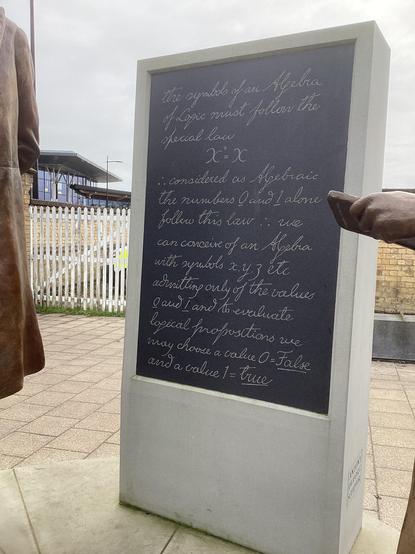 the symbols of an Algebra
of Logic must follow the
special law
x²=x
∴ considered as Algebraic
the numbers 0 and 1 alone
follow this law ∴ we
can conceive of an Algebra
with symbols x, y, z etc
admitting only of the values
0 and 1 and to evaluate
logical propositions we
may choose a value 0=False
and a value 1=true